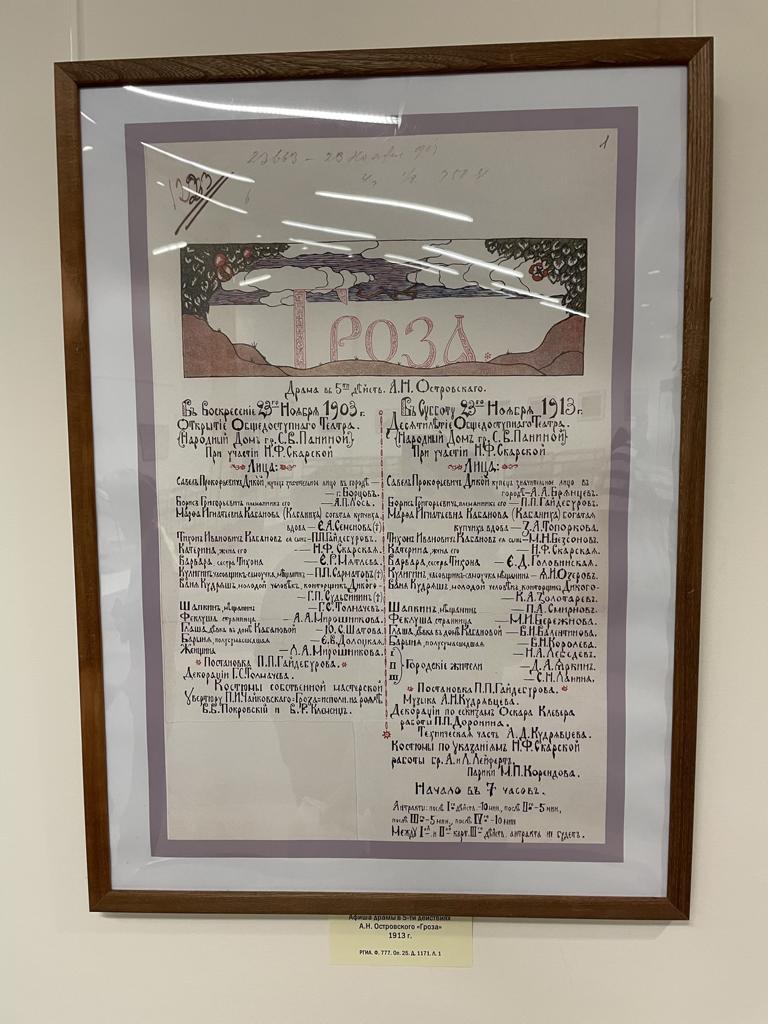 1
23663 – 23 Ноября 913
ГРОЗА.
Драма въ 5ти дѣйств. А.Н. Островскаго.
Въ Воскресенiе 23го Ноября 1903 г.
Открытiе Общедоступнаго Театра.
{Народный Домъ гр. С.В. Паниной}
При участiи Н.Ф. Скарской
Лица:
Савелъ Прокофьевичъ Дикой, купецъ значительное лицо въ городѣ —
— г. Борцовъ.
Борисъ Григорьевичъ племянникъ его — А.П. Лось.
Марфа Игнатьевна Кабанова (Кабаниха) богатая купчиха,
вдова — Е.А. Семенова (†)
Тихонъ Ивановичъ Кабановъ ея сынъ — П.П. Гайдебуровъ.
Катерина, жена его — Н.Ф. Скарская.
Варвара, сестра Тихона — Е.Р. Мятлева.
Кулигинъ, часовщикъ самоучка, мѣщанинъ — П.П. Сарматовъ (†)
Ваня Кудряшъ, молодой человѣкъ, конторщикъ Дикого-
— Г.П. Судьбининъ (†)
Шапкинъ, мѣщанинъ — Г.С. Толмачевъ.
Феклуша странница — А.А. Мирошникова.
Глаша, дѣвка въ домѣ Кабановой — Ю.С. Шатова.
Барыня, полусумасшедшая — Е.В. Долоцкая.
Женщина — Л.А. Мирошникова.
Постановка П.П. Гайдебурова.
Декорацiи Г.С. Толмачева.
Костюмы собственной мастерской
Увертюру П.И. Чайковскаго «Гроза» исполн. на роялѣ
Б.В. Покровскiй и В.Р. Клемсиц.
Въ Субботу 23го Ноября 1913 г.
Десятилѣтiе Общедоступнаго Театра.
{Народный Домъ гр. С.В. Паниной}
При участiи Н.Ф. Скарской
Лица:
Савелъ Прокофьевичъ Дикой купецъ значительное лицо въ
городѣ — А.А. Брянцевъ.
Борисъ Григорьевичъ, племянникъ его — П.П. Гайдебуровъ.
Марфа Игнатьевна Кабанова (Кабаниха) богатая
купчиха вдова — З.А. Топоркова.
Тихонъ Ивановичъ Кабановъ ея сынъ — М.Н. Безсоновъ.
Катерина, жена его — Н.Ф. Скарская.
Варвара, сестра Тихона — Е.Д. Головинская.
Кулигинъ, часовщикъ-самоучка мѣщанинъ — Я.И. Озеровъ.
Ваня Кудряшъ, молодой человѣкъ, конторщикъ Дикого-
— К.А. Золотаревъ.
Шапкинъ, мѣщанинъ — П.А. Смирновъ.
Феклуша странница — М.И. Бережнова.
Глаша, дѣвка въ домѣ Кабановой — Б.Н. Валентинова.
Барыня, полусумасшедшая — В.Н. Королева.
— Н.А. Лебедевъ.
I
II } Городскiе жители — Д.А. Яркинъ.
III — С.Н. Ланина.
Постановка П.П. Гайдебурова.
Музыка А.Н. Кудрявцева.
Декорацiи по эскизамъ Оскара Клевера
работы П.П. Доронина.
Техническая часть А.Д. Кудрявцева.
Костюмы по указанiямъ Н.Ф. Скарской
работы бр. А. и Л. Лейфертъ.
Парики М.П. Корендова.
Начало въ 7 часовъ.
Антракты: послѣ Iго дѣйств.-10 мин, послѣ IIго-5 мин,
послѣ IIIго-5 мин, послѣ IVго-10 мин
Между Iй и IIй карт. IIIго дѣйств. антракта не будетъ.
Афиша драмы в 5-ти действиях
А.Н. Островского «Гроза»
1913 г.
РГИА. Ф. 777. Оп. 25. Д. 1171. Л. 1